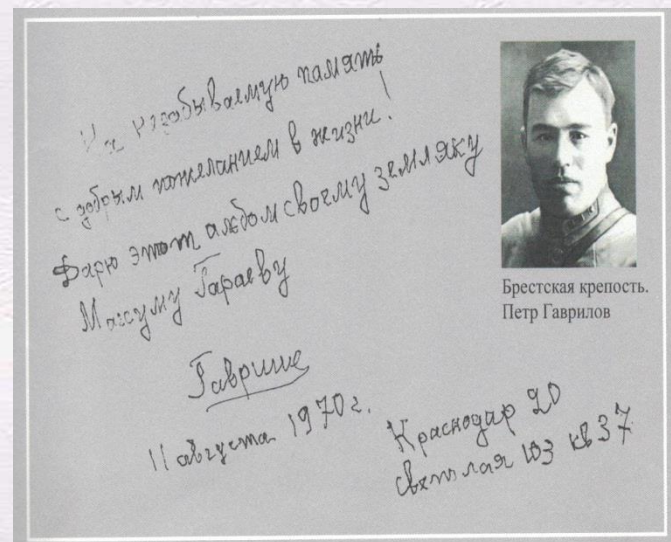 На незабываемую память
с добрым пожеланием в жизни!
Дарю этот альбом своему земляку
Максуму Гараеву
11 августа 1970 г.
Краснодар 20
светлая 103 кв 37
Брестская крепость.
Петр Гаврилов